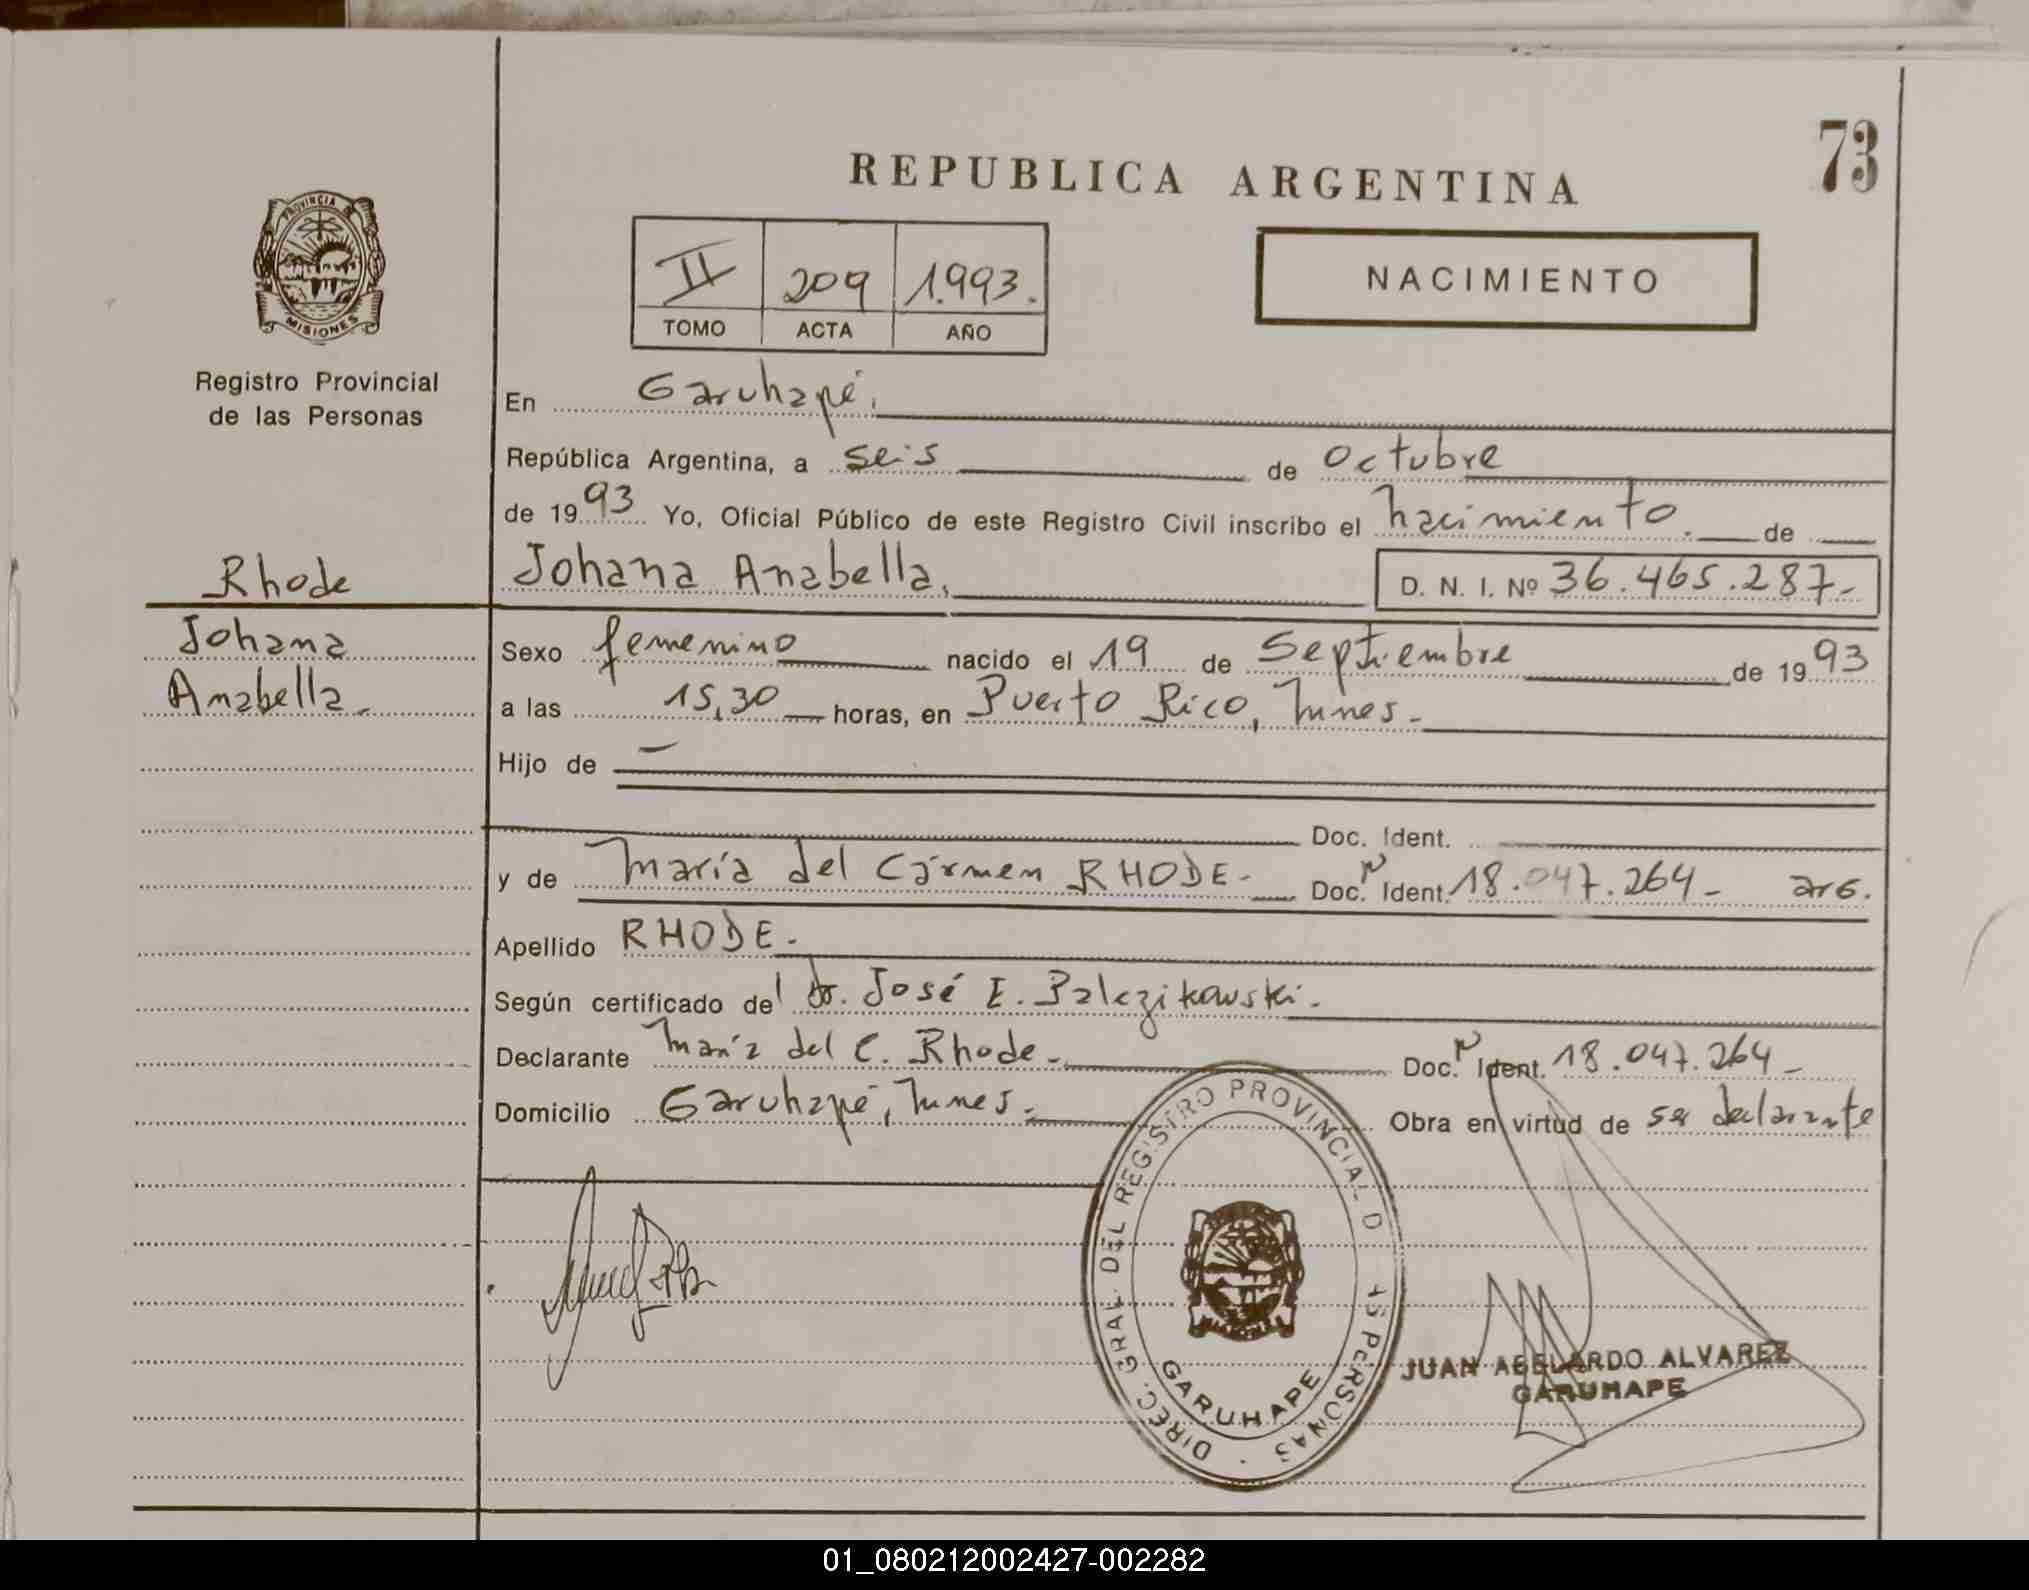 73
REPUBLICA ARGENTINA
PROVINCIA DE
MISIONES
Registro Provincial
de las Personas
NACIMIENTO
II 209 1.993.
TOMO ACTA AÑO
En Garuhapé,
República Argentina, a seis de octubre
de 1993 Yo, Oficial Público de este Registro Civil inscribo el nacimiento. de
Johana Anabella. D. N. I. Nº 36.465.287-
Rhode
Johana
Anabella.
Sexo femenino nacido el 19 de Septiembre de 1993
a las 15,30 horas, en Puerto Rico, Mnes.
Hijo de —
Doc. Ident.
y de María del Cármen RHODE. Doc. N Ident. 18.047.264- arg.
Apellido RHODE.
Según certificado del dr. José E.
Declarante María del C. Rhode. Doc. N Ident. 18.047.264-
Domicilio Garuhapé, Mnes. Obra en virtud de ser declarante
DIREC. GRAL. DEL REGISTRO PROVINCIAL D AS PERSONAS
GARUHAPE
JUAN ABELARDO ALVAREZ
GARUHAPE
01_080212002427-002282